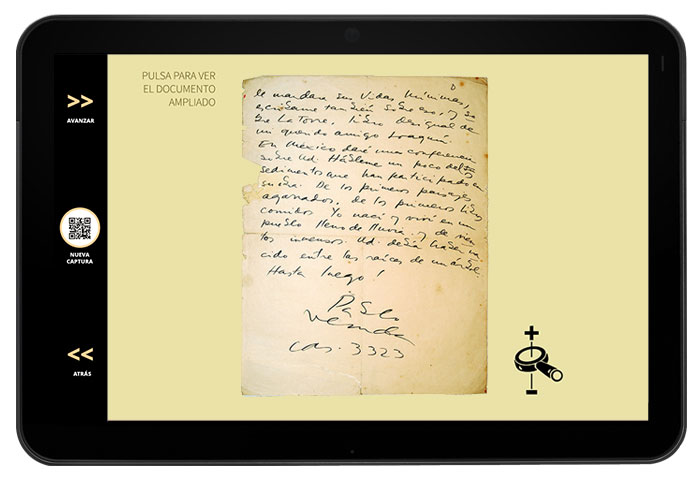 PULSA PARA VER
EL DOCUMENTO
AMPLIADO
>>
AVANZAR
NUEVA
CAPTURA
<<
ATRÁS
le mandara sus Vidas Mínimas,
escríbame también sobre eso, y so
bre La Torre, libro desigual de
mi querido amigo Joaquín.
En México daré una conferencia
sobre Ud. Hábleme un poco de los
sedimentos que han participado en
su obra. De los primeros paisajes
agarrados, de los primeros libros
comidos. Yo nací y viví en un
pueblo lleno de lluvia y de vien
tos inmensos. Ud. debía haber na
cido entre las raíces de un árbol.
Hasta luego!
Pablo
Neruda
cas. 3323
+
-